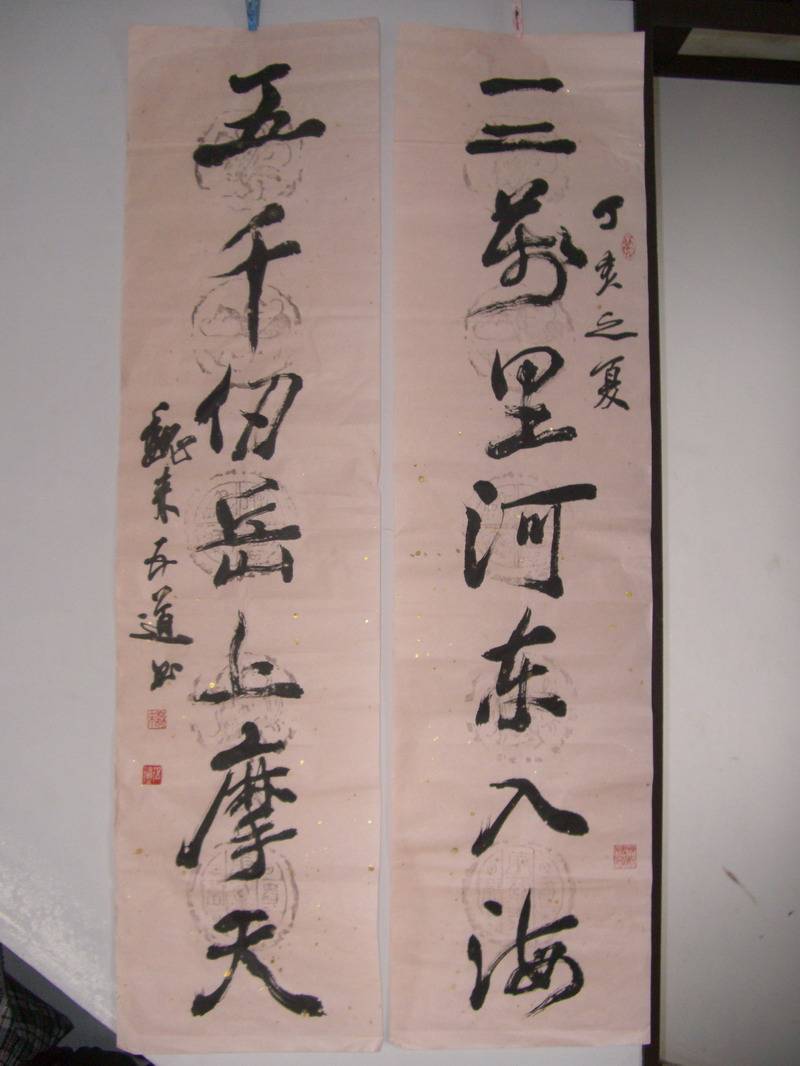 丁亥之夏
三萬里河东入海
五千仞岳上摩天
魏来 道书